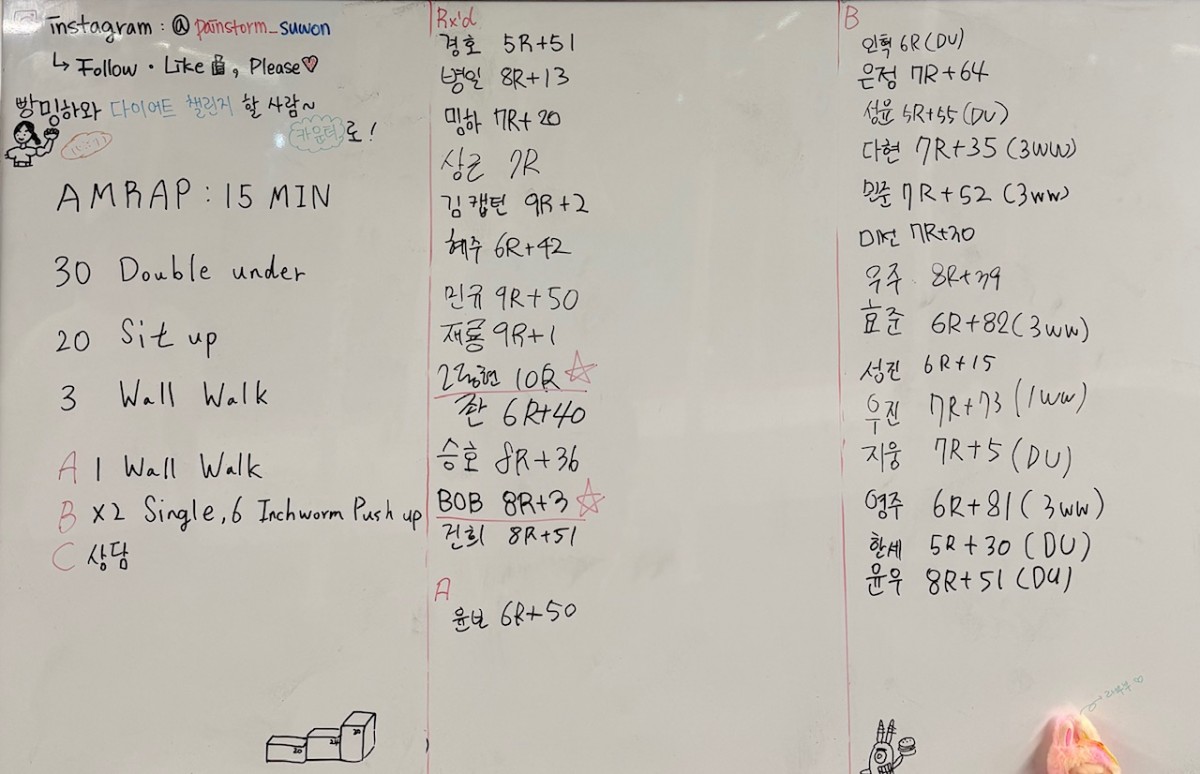 instagram : @ painstorm_suwon
↳ Follow · Like 👍, Please♡
빵밍하와 다이어트 챌린지 할 사람~
카운터로!
AMRAP : 15 MIN
30 Double under
20 Sit up
3 Wall Walk
A 1 Wall Walk
B x2 Single, 6 Inchworm Push up
C 상담
20
24
30
Rx'd
경호 5R+51
병일 8R+13
밍하 7R+20
상근 7R
김캡틴 9R+2
혜주 6R+42
민유 9R+50
재룡 9R+1
10R ☆
6R+40
승호 8R+36
BOB 8R+3 ☆
건희 8R+51
A
윤보 6R+50
B
인혁 6R (DU)
은정 7R+64
성윤 5R+55 (DU)
다현 7R+35 (3WW)
민준 7R+52 (3ww)
미선 7R+30
우주 8R+39
효준 6R+82 (3ww)
성진 6R+15
우진 7R+73 (1ww)
지웅 7R+5 (DU)
영주 6R+81 (3ww)
한세 5R+30 (DU)
윤우 8R+51 (DU)